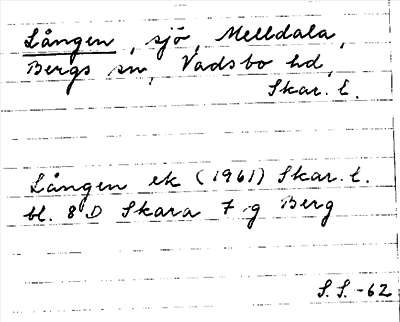 Lången, sjö, Melldala,
Bergs sn, Vadsbo hd,
Skar. l.
Lången ek (1961) Skar. l.
bl. 8 D Skara 7 g Berg
S.S.-62